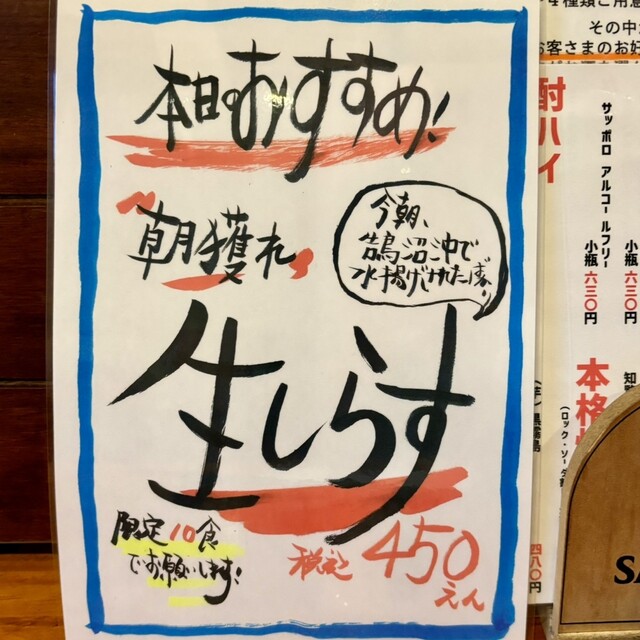 本日のおすすめ!
"朝獲れ"
今朝、
鵠沼沖で
水揚げされたよ。
生しらす
限定10食
でお願いします!
税込450
えん
4種類ご用意
その中
お客さまのお好
酎ハイ
サッポロ アルコールフリー
小瓶 六三〇円
小瓶 六三〇円
本格
(ロック・ソーダ
四八〇円
SA